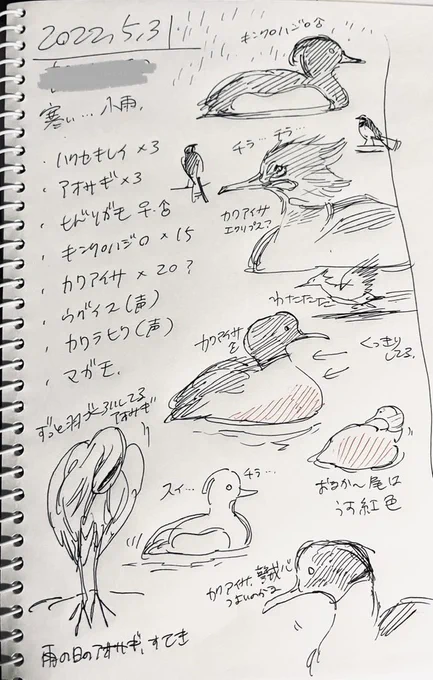 2022.5.31
寒い…小雨。
・ハクセキレイ×3
・アオサギ×3
・ヒドリガモ ♀・♂
・キンクロハジロ×15
・カワアイサ×20?
・ウグイス(声)
・カワラヒワ(声)
・マガモ。
キンクロハジロ♂
チラ…チラ…
カワアイサ
エクリプス?
わたたたた
カワアイサ
♂
くっきり
してる。
ずっと羽づくろいしてる
アオサギ
スイ…
チラ…
おなかと尾は
うす紅色
カワアイサ、警戒心
つよいのう…
雨の日のアオサギ、すてき